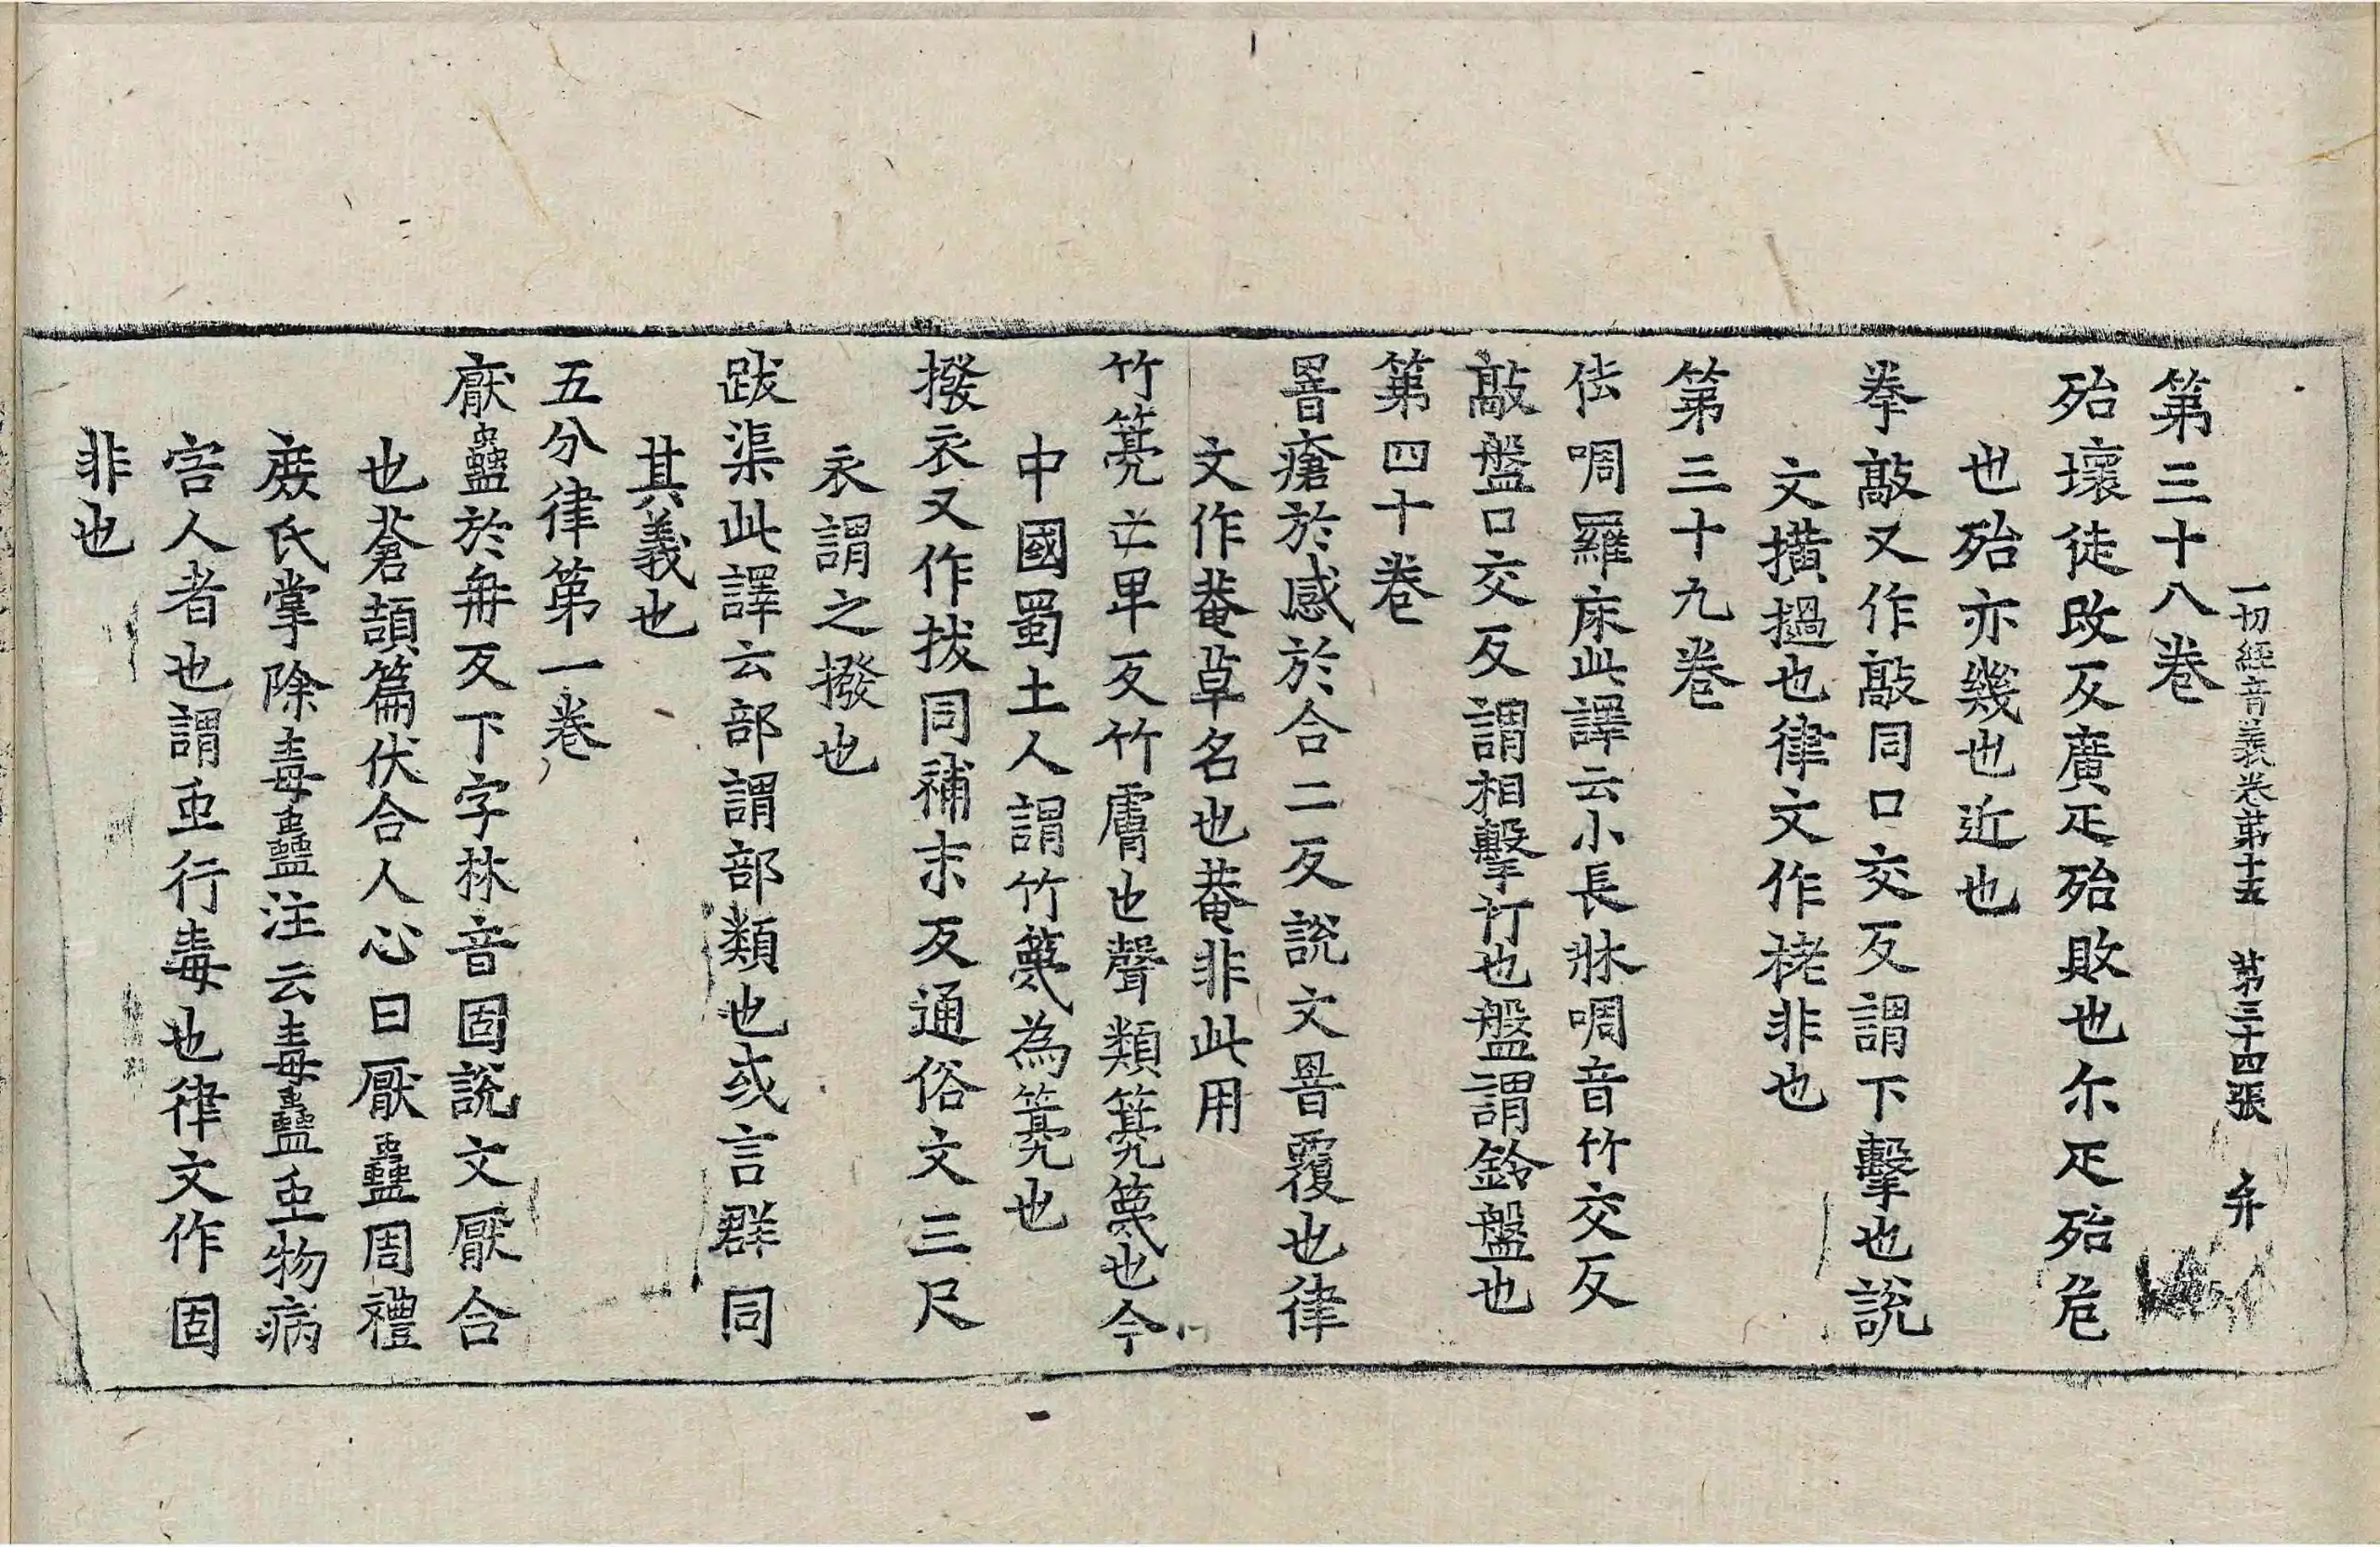 一切經音義卷第十五 第三十四張 弁
第三十八卷
殆壞徒改反廣疋殆敗也尓疋殆危
也殆亦幾也近也
拳敲又作敲同口交反謂下擊也說
文撗撾也律文作栳非也
第三十九卷
佉啁羅床此譯云小長牀啁音竹交反
敲盤口交反謂相擊竹也盤謂鈴盤也
第四十卷
罯瘡於感於合二反說文罯覆也律
文作菴草名也菴非此用
竹䈍亡卑反竹膚也聲類䈍篾也今
中國蜀土人謂竹篾為䈍也
撥衣又作拔同補末反通俗文三尺
衣謂之撥也
跋渠此譯云部謂部類也或言群同
其義也
五分律第一卷
厭蠱於冉反下字林音固說文厭合
也蒼頡篇伏合人心曰厭蠱周禮
庶氏掌除毒蠱注云毒蠱虫物病
害人者也謂虫行毒也律文作固
非也